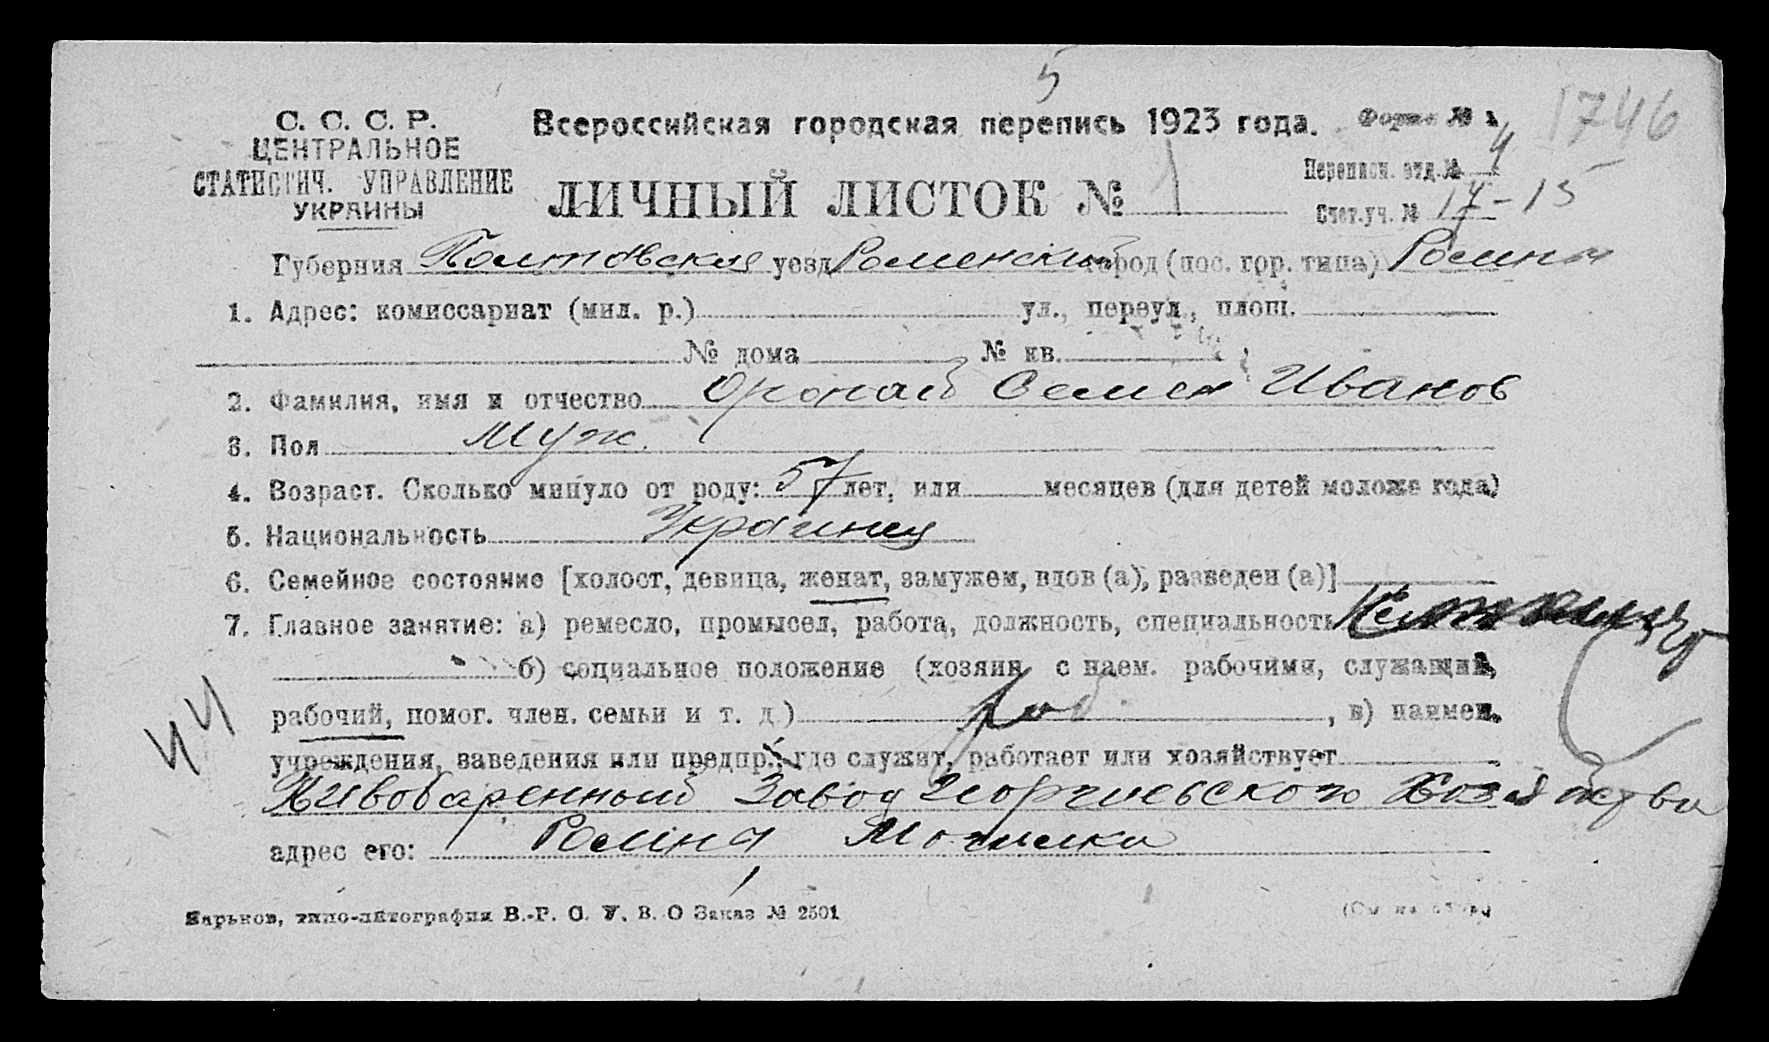 5
С. С. С. Р.
ЦЕНТРАЛЬНОЕ
СТАТИСТИЧ. УПРАВЛЕНИЕ
УКРАИНЫ
Всероссийская городская перепись 1923 года.
Форма № 1
1746
ЛИЧНЫЙ ЛИСТОК № 1
Переписн. отд. № 4
Счет. уч. № 17-15
Губерния Полтавская уезд Роменский город (пос. гор. типа) Ромны
1. Адрес: комиссариат (мил. р.) ул., переул., площ.
№ дома № кв.
2. Фамилия, имя и отчество Семен Иванов
3. Пол Муж.
4. Возраст. Сколько минуло от роду: 57 лет, или месяцев (для детей моложе года)
5. Национальность Украинец
6. Семейное состояние [холост, девица, женат, замужем, вдов (а), разведен (а)]
7. Главное занятие: а) ремесло, промысел, работа, должность, специальность
б) социальное положение (хозяин с наем. рабочими, служащий,
рабочий, помог. член. семьи и т. д.) раб. , в) наимен.
44
учреждения, заведения или предпр., где служит, работает или хозяйствует
Пивоваренный Завод Георгиевского Хозяйства
адрес его: Ромны
Харьков, типо-литография В.-Р. С. У. В. О Заказ № 2501
(См. на обор.)